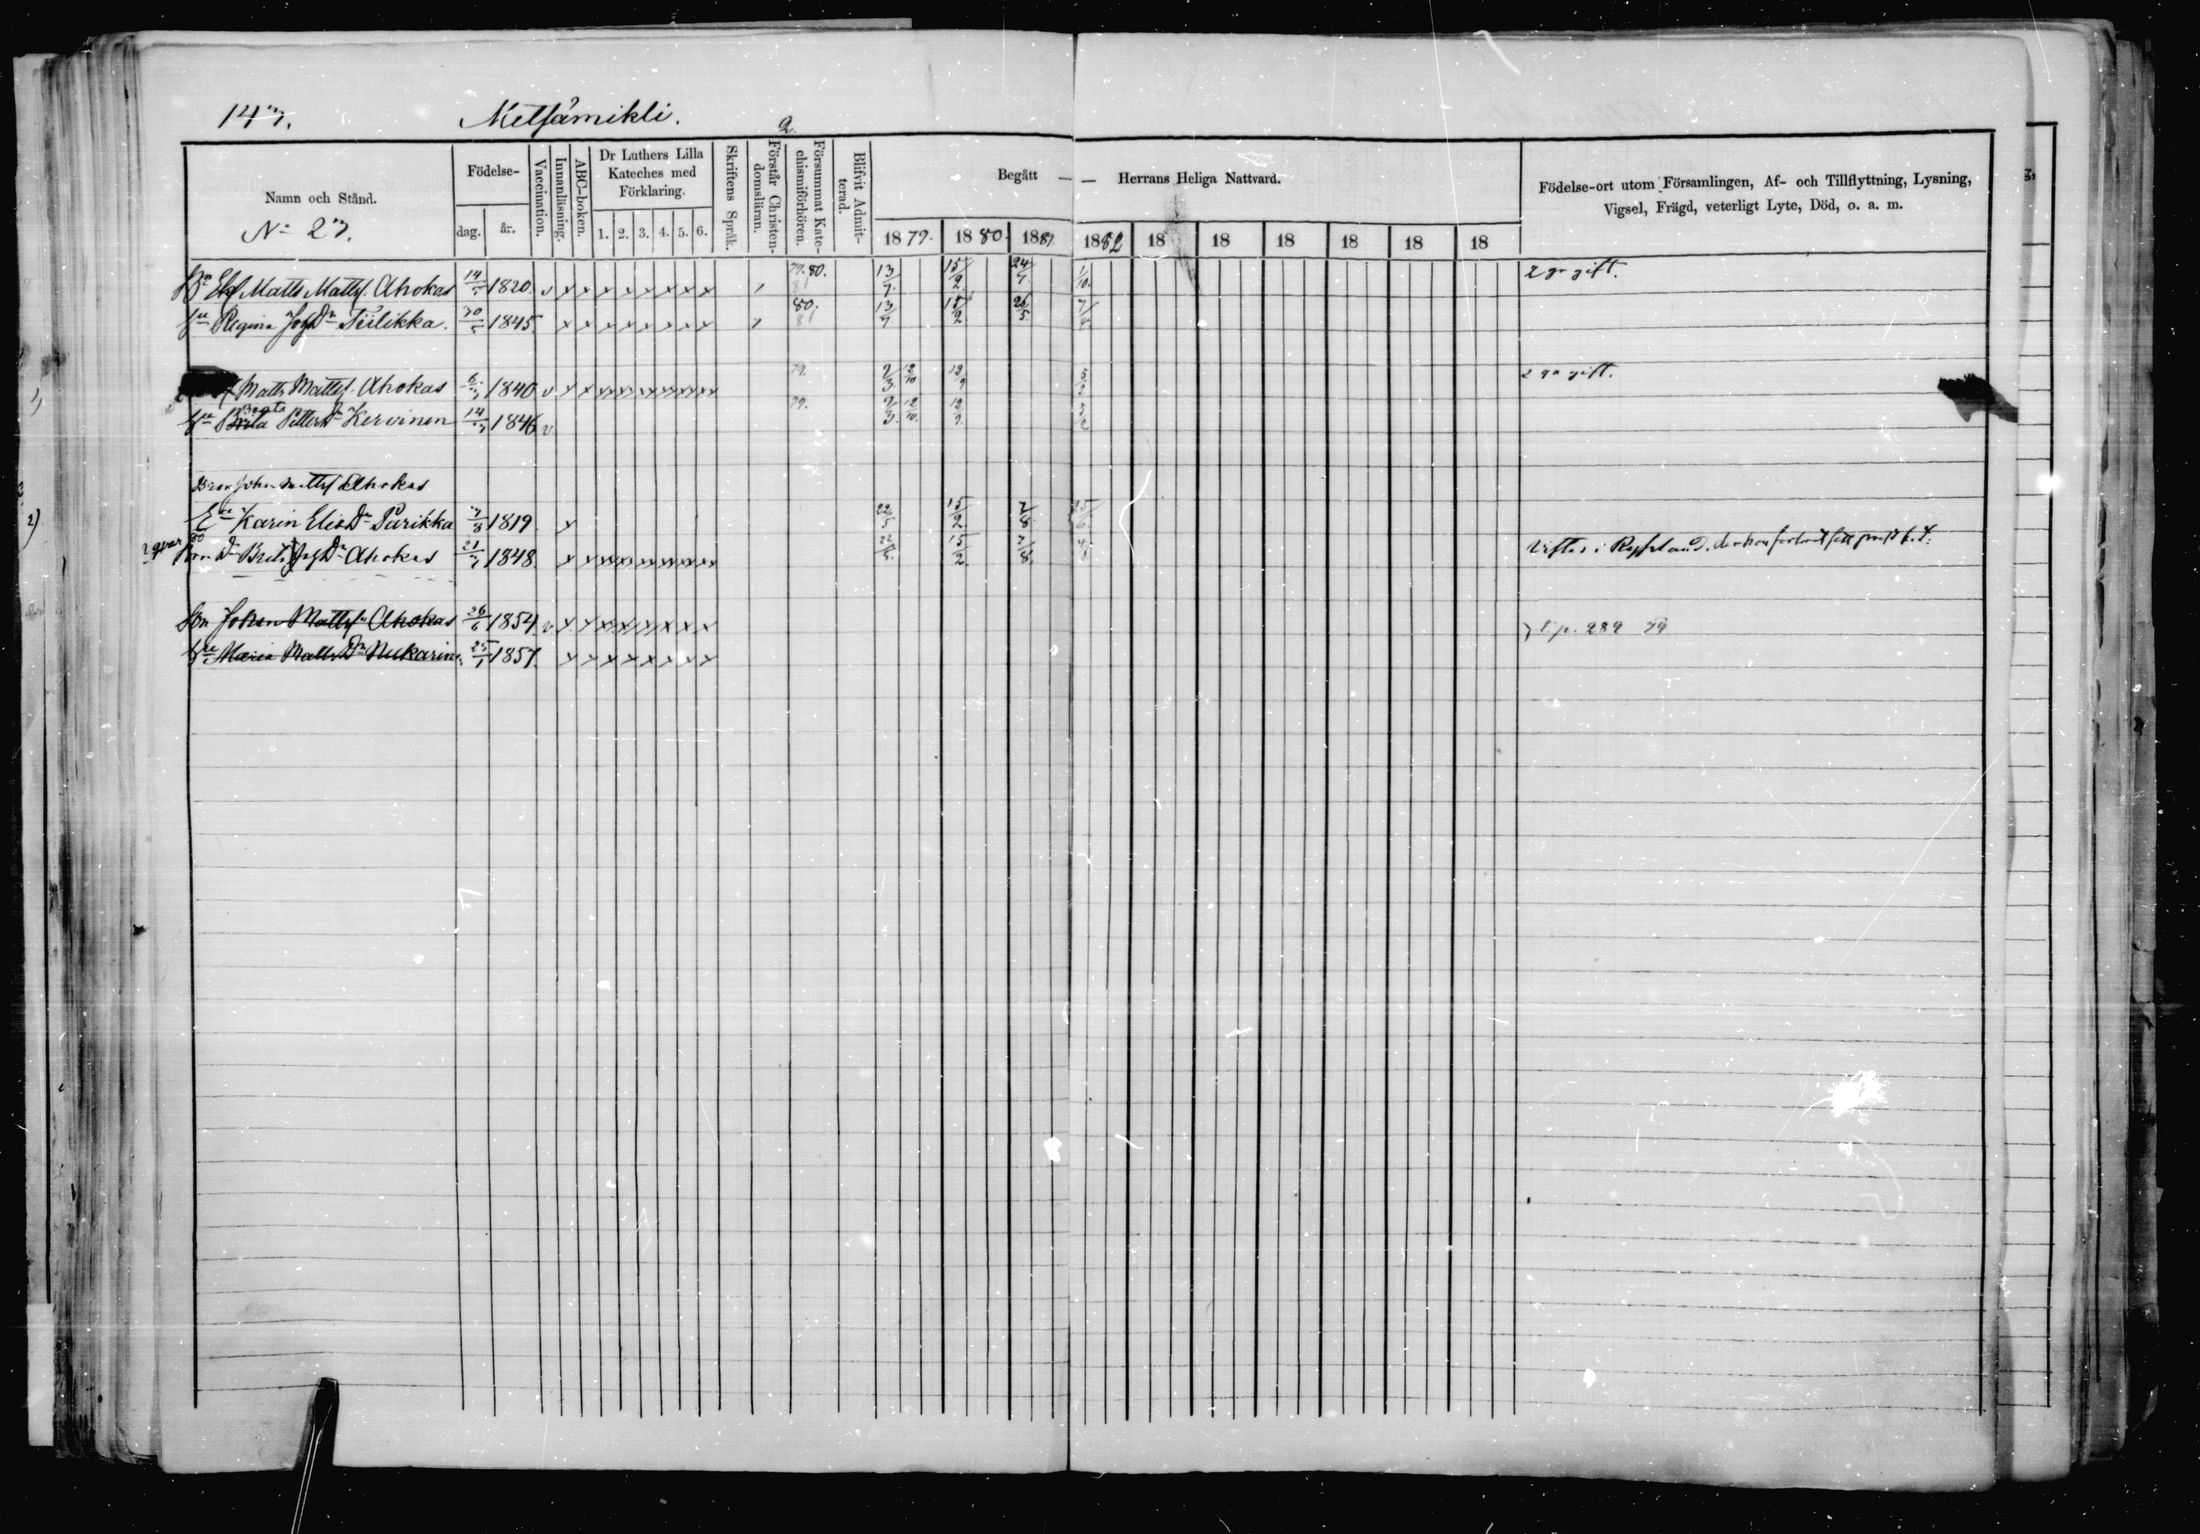 147. Metsämikli.
2
Namn och Stånd.
Födelse-
dag.
år.
Vaccination.
Innanläsning.
ABC-boken.
Dr Luthers Lilla
Kateches med
Förklaring.
1. 2. 3. 4. 5. 6.
Skriftens Språk.
Förstår Christen-
domsläran.
Försummat Kate-
chismiförhören.
Blifvit Admit-
terad.
Begått — — Herrans Heliga Nattvard.
1879. 1880. 1881. 1882 18 18 18 18 18 18
Födelse-ort utom Församlingen, Af- och Tillflyttning, Lysning,
Vigsel, Frägd, veterligt Lyte, Död, o. a. m.
No 27.
Matts Matts. Ahokas 14/5 1820. v x x x x x x x x 79. 80. 13/7. 15/2 24/7 1/10. 2 gr gift.
Regina Jos Dr Piilikka. 30/5 1845. x x x x x x x x 80. 13/7. 15/2 26/5. 7/
Matts Matts. Ahokas 6/7 1840 v x x x x x x x x 79. 2/3 12/10 12/9 5/2 2 gr gift.
Beata
Brita Petter Dr Kervinen 14/7 1846 v. 79. 2/3. 12/10. 12/9. 5/2
Bron Johan Matts Ahokas
Karin Elias Dr Parikka 7/8 1819. x 22/5 15/2 7/8 25/6
Dr Brita Jos Dr Ahokas 21/7 1848. x x x x x x x x 22/5. 15/2. 7/8. Vistas i Ryssland.
Johan Matts Ahokas 26/6 1854. v x x x x x x x x p. 289 79
Maria Matts Dr Nukarinen 25/1 1857. x x x x x x x x